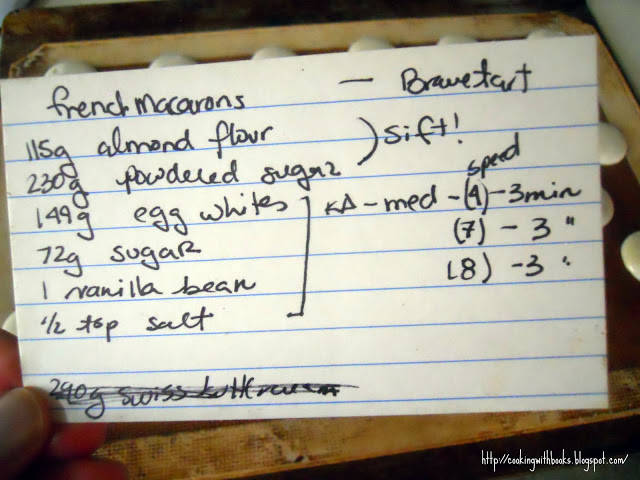 french macarons — Bravetart
115g almond flour ) sift!
230g powdered sugar
speed
149g egg whites ] KA - med - (4) - 3min
72g sugar (7) - 3 "
1 vanilla bean (8) - 3 "
1/2 tsp salt
240g swiss buttercream
http://cookingwithbooks.blogspot.com/